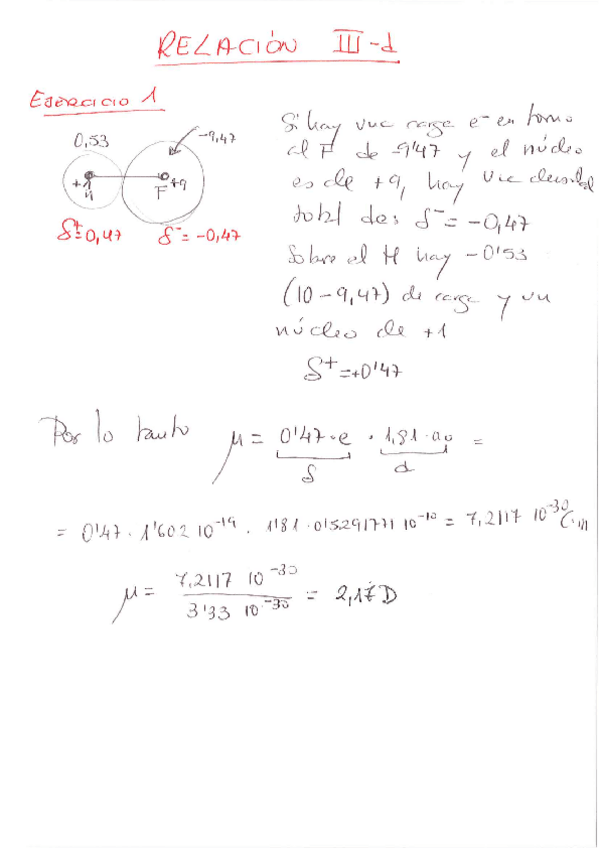 RELACIÓN III-d
EJERCICIO 1
0,53
-9,47
+1
H
F
+9
δ+= 0,47
δ-= -0,47
Si hay una carga e- en torno
al F de -9'47 y el núcleo
es de +9, hay una densidad
total de: δ- = -0,47
Sobre el H hay -0'53
(10-9,47) de carga y un
núcleo de +1
δ+ = +0'47
Por lo tanto μ = 0'47·e · 1,81·a0 =
δ d
= 0'47 · 1'602 10-19 · 1'81 · 0'5291771 10-10 = 7,2117 10-30 C·m
μ = 7,2117 10-30 / 3'33 10-30 = 2,17 D